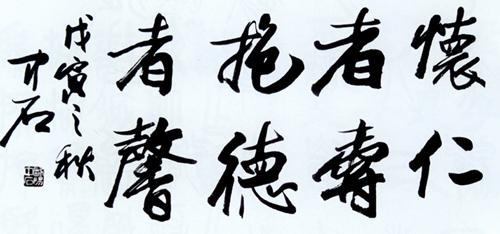 懷仁
者壽
抱德
者馨
戊寅之秋
中石